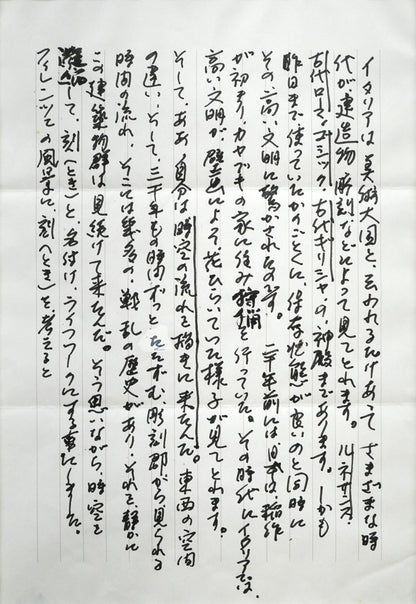 イタリアは美術大国と云われるだけあって さまざまな時
代が、建造物 彫刻などによって見てとれます。ルネサンス、
古代ローマ、ゴシック、古代ギリシャの神殿まであります。しかも
昨日まで使っていたかのごとくに、保存状態が良いのと同時に
その高い文明に驚かされたのです。二千年前には日本は、稲作
が初まり、カヤブキの家に住み 狩猟を行っていた。その時代にイタリアでは、
高い文明が 壁画によって花ひらいていた様子が見てとれます。
そして、ああ 自分は時空の流れを描きに来たんだ。東西の空間
の違い、そして、二千年もの時間ずっとたたずむ、彫刻群から見られる
時間の流れ、そこには幾多の、戦乱の歴史があり、それを、静かに
この建築物群は見続けて来たんだ。そう思いながら、時空を
して、刻(とき)と、名付け、ライフワークにする事にしました。
フィレンツェの風景に刻(とき)を考えると